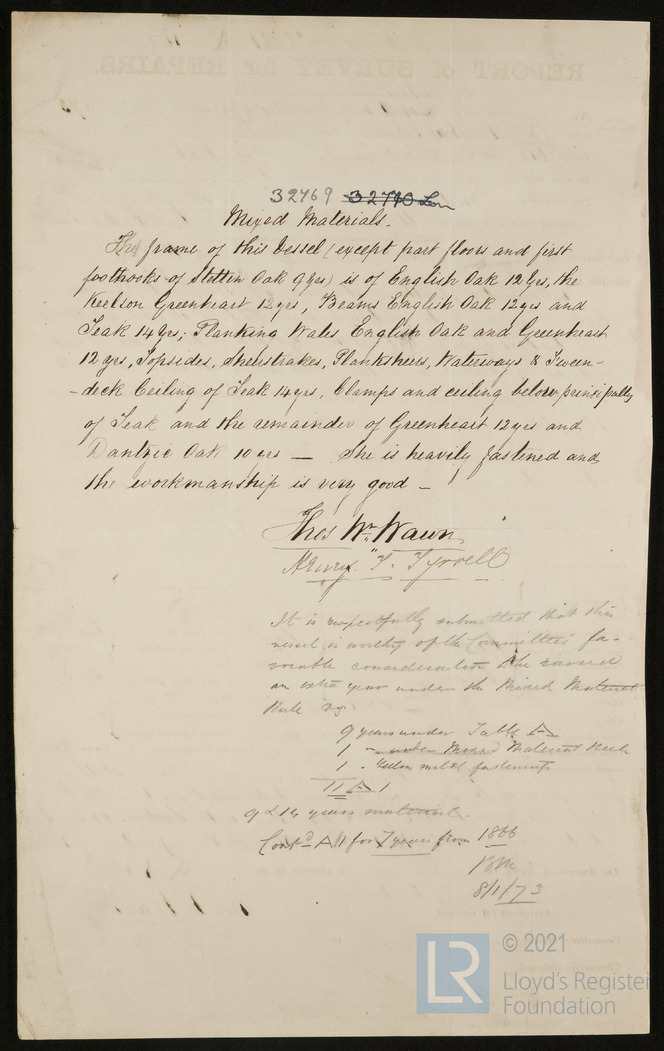 REPORT of SURVEY for REPAIRS.
32769 32770 Lon
Mixed Materials.
The frame of this Vessel (except part floors and first
foothooks of Stettin Oak 9 yrs) is of English Oak 12 Yrs, the
Keelson Greenheart 12 yrs, Beams English Oak 12 yrs and
Teak 14 Yrs; Planking Wales English Oak and Greenheart
12 yrs, Topsides, Sheerstrakes, Planksheers, Waterways & Tween-
-deck Ceiling of Teak 14 yrs, Clamps and ceiling below principally
of Teak and the remainder of Greenheart 12 yrs and
Dantzic Oak 10 yrs — She is heavily fastened and
the workmanship is very good —
Thos Wm. Wawn
Henry F. Tyrrell
It is respectfully submitted that this
vessel is worthy of the Committee's fa-
vorable consideration & be
an extra year under the Mixed Material
Rule vz
9 years under Table A
1 - under Mixed Material Rule
1 - Yellow metal fastenings
11 A 1
9 & 14 years material.
Cont'd A1 for 7 years from 1866
8/1/73
© 2021
LR Lloyd's Register
Foundation